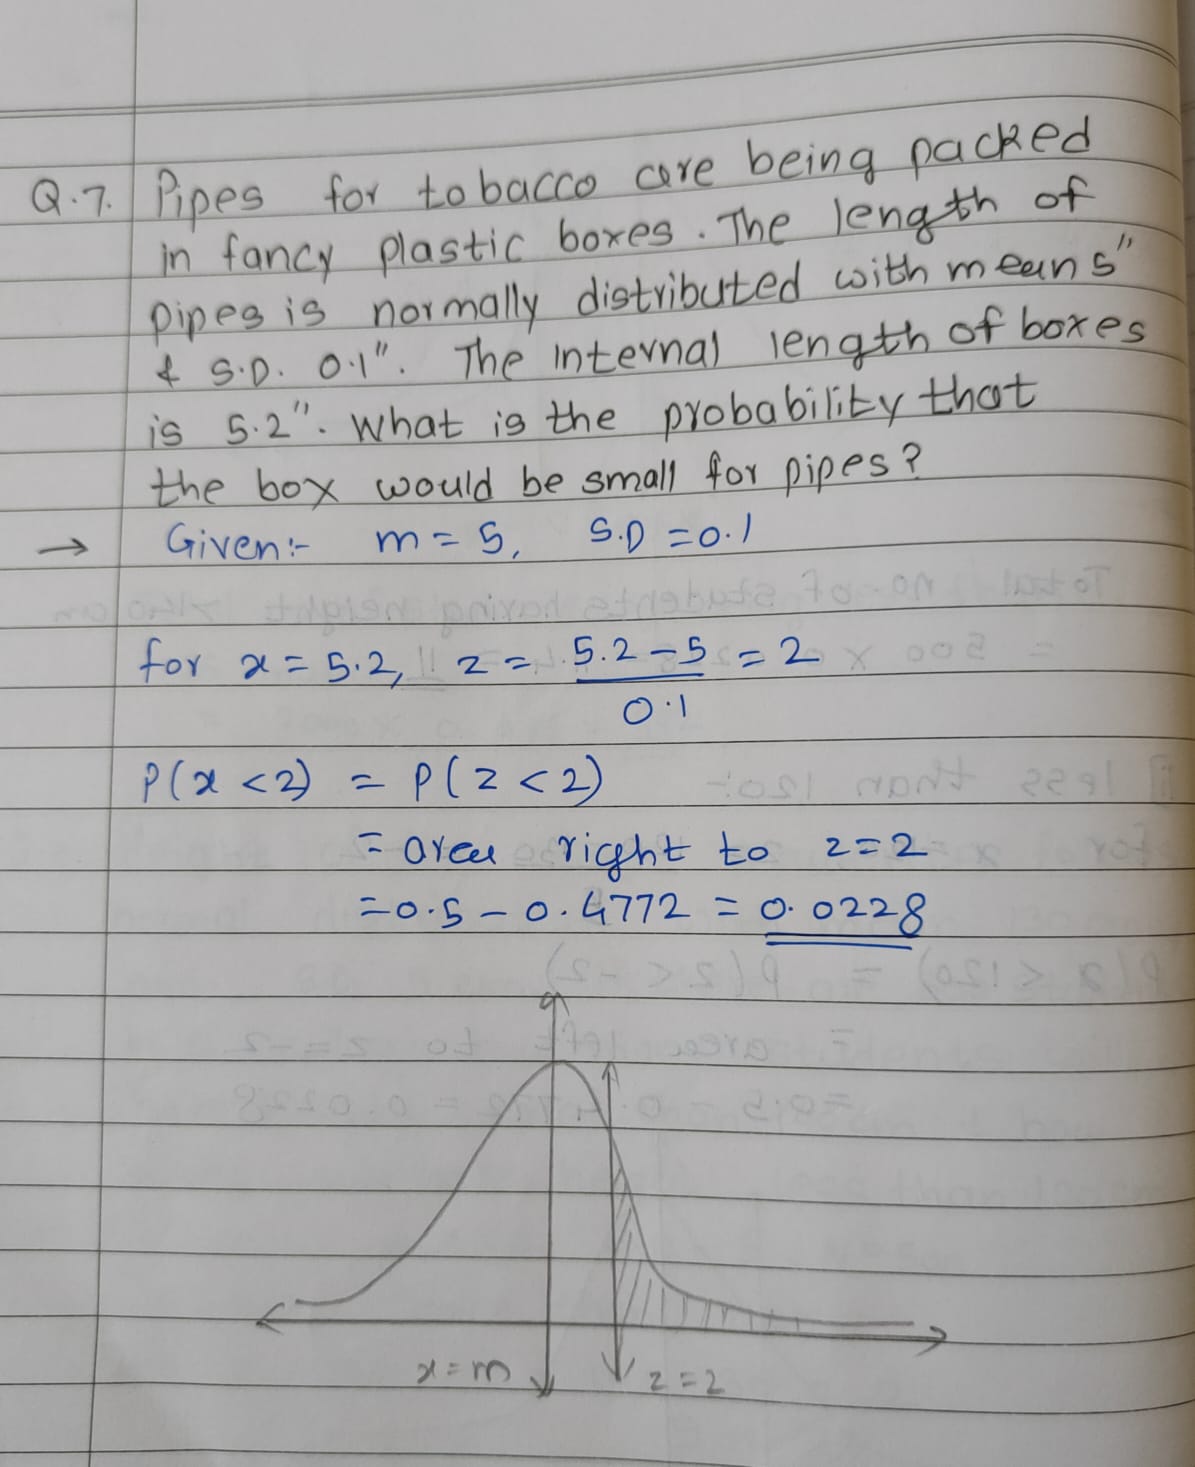 Q.7. Pipes for tobacco are being packed
in fancy plastic boxes. The length of
pipes is normally distributed with mean 5"
& S.D. 0.1". The internal length of boxes
is 5.2". What is the probability that
the box would be small for pipes?
→ Given:- m = 5, S.D = 0.1
for x = 5.2, z = 5.2 - 5 = 2
0.1
P(x < 2) = P(z < 2)
= area right to z = 2
= 0.5 - 0.4772 = 0.0228
x = m
z = 2